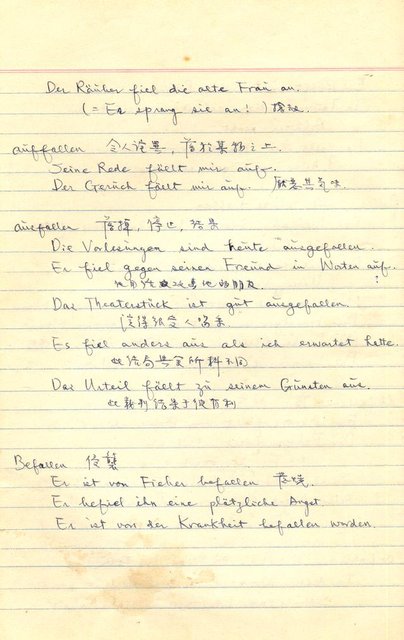 Der Räuber fiel die alte Frau an.
(= Er sprang sie an!) 搶劫.
auffallen 令人詫異, 落於某物之上.
Seine Rede fällt mir auf.
Der Geruch fällt mir auf. 厭惡其氣味
ausfallen 落掉, 停止, 結果
Die Vorlesungen sind heute ausgefallen.
Er fiel gegen seinen Freund in Worten auf.
他的朋友
Das Theaterstück ist gut ausgefallen.
人喝采
Es fiel anders aus als ich erwartet hatte.
此結局與所料不同
Das Urteil fällt zu seinem Gunsten aus.
此裁判結果于彼有利
Befallen 侵襲
Er ist von Fieber befallen 發燒.
Er befiel ihn eine plötzliche Angst.
Er ist von der Krankheit befallen worden.